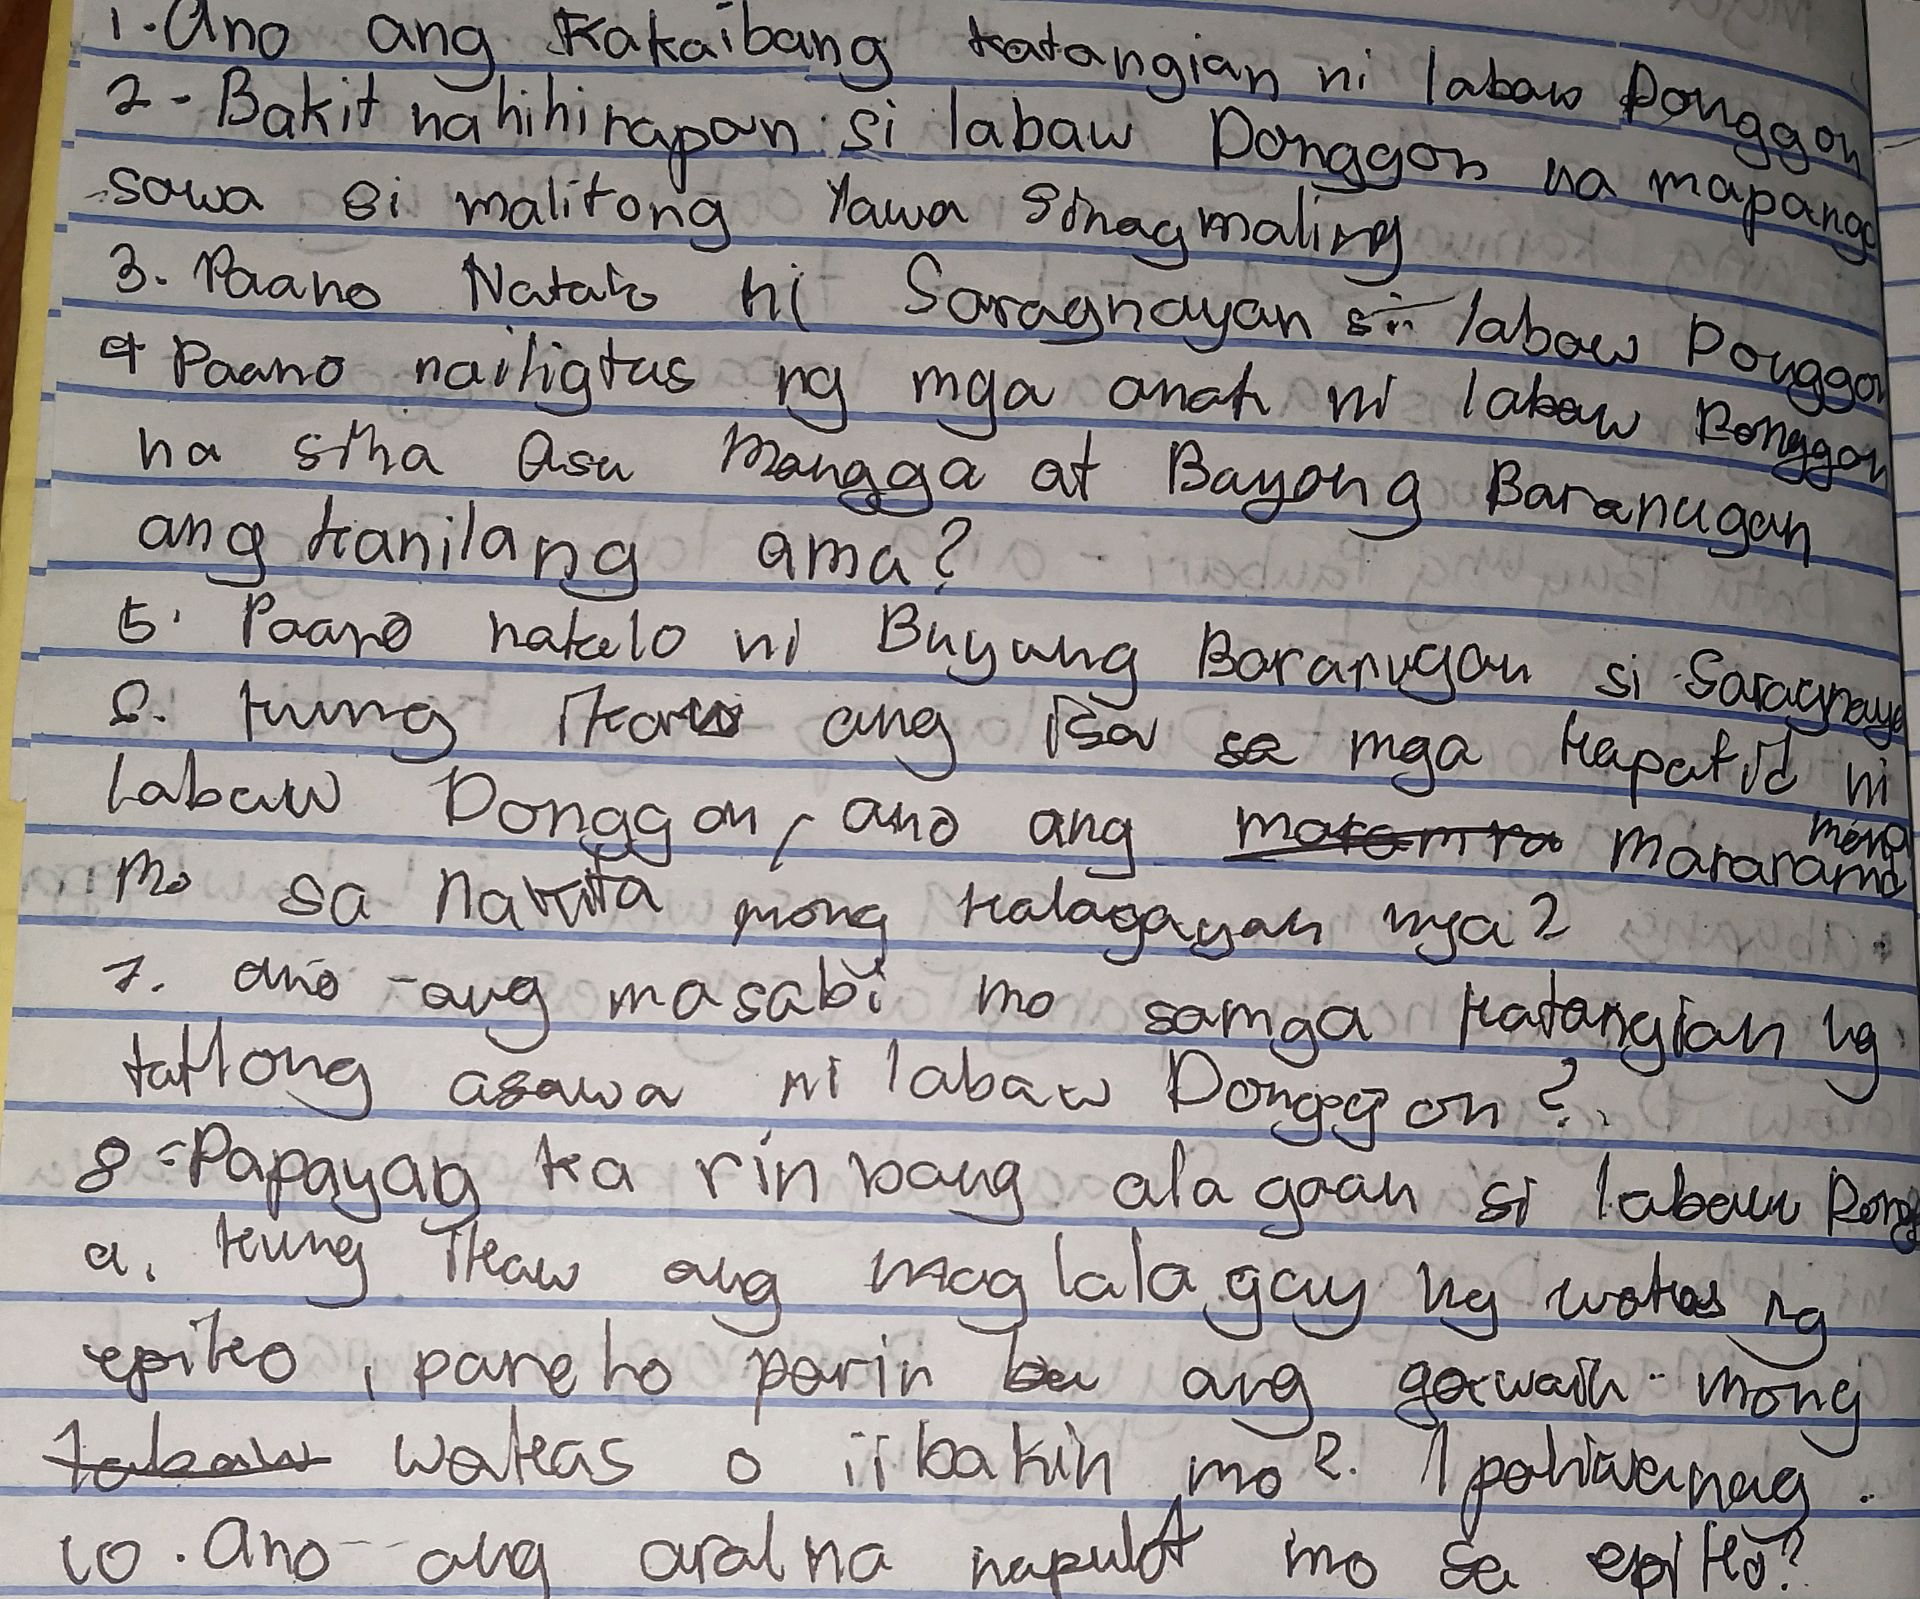 1. Ano ang kakaibang katangian ni labaw Donggon
2 - Bakit nahihirapan si labaw Donggon na mapanga
sawa si malitong Yawa Sinagmaling
3. Paano Natalo ni Saragnayan si labaw Donggon
4 Paano nailigtas ng mga anak ni labaw Donggon
na sina Asu Mangga at Bayong Baranugan
ang kanilang ama?
5. Paano natalo ni Buyung Baranugan si Saragnaya
6. kung ikaw ang isa sa mga kapatid ni
Labaw Donggon, ano ang mararamd
mo sa nakita mong kalagayan nya?
7. ano ang masabi mo samga katangian ng
tatlong asawa ni labaw Donggon?
8 - Papayag ka rin bang alagaan si labaw Dongg
a. kung ikaw ang maglalagay ng wakas ng
epiko, pareho parin ba ang gawain mong
wakas o iibahin mo? Ipaliwanag.
10. Ano ang aral na napulot mo sa epiko?